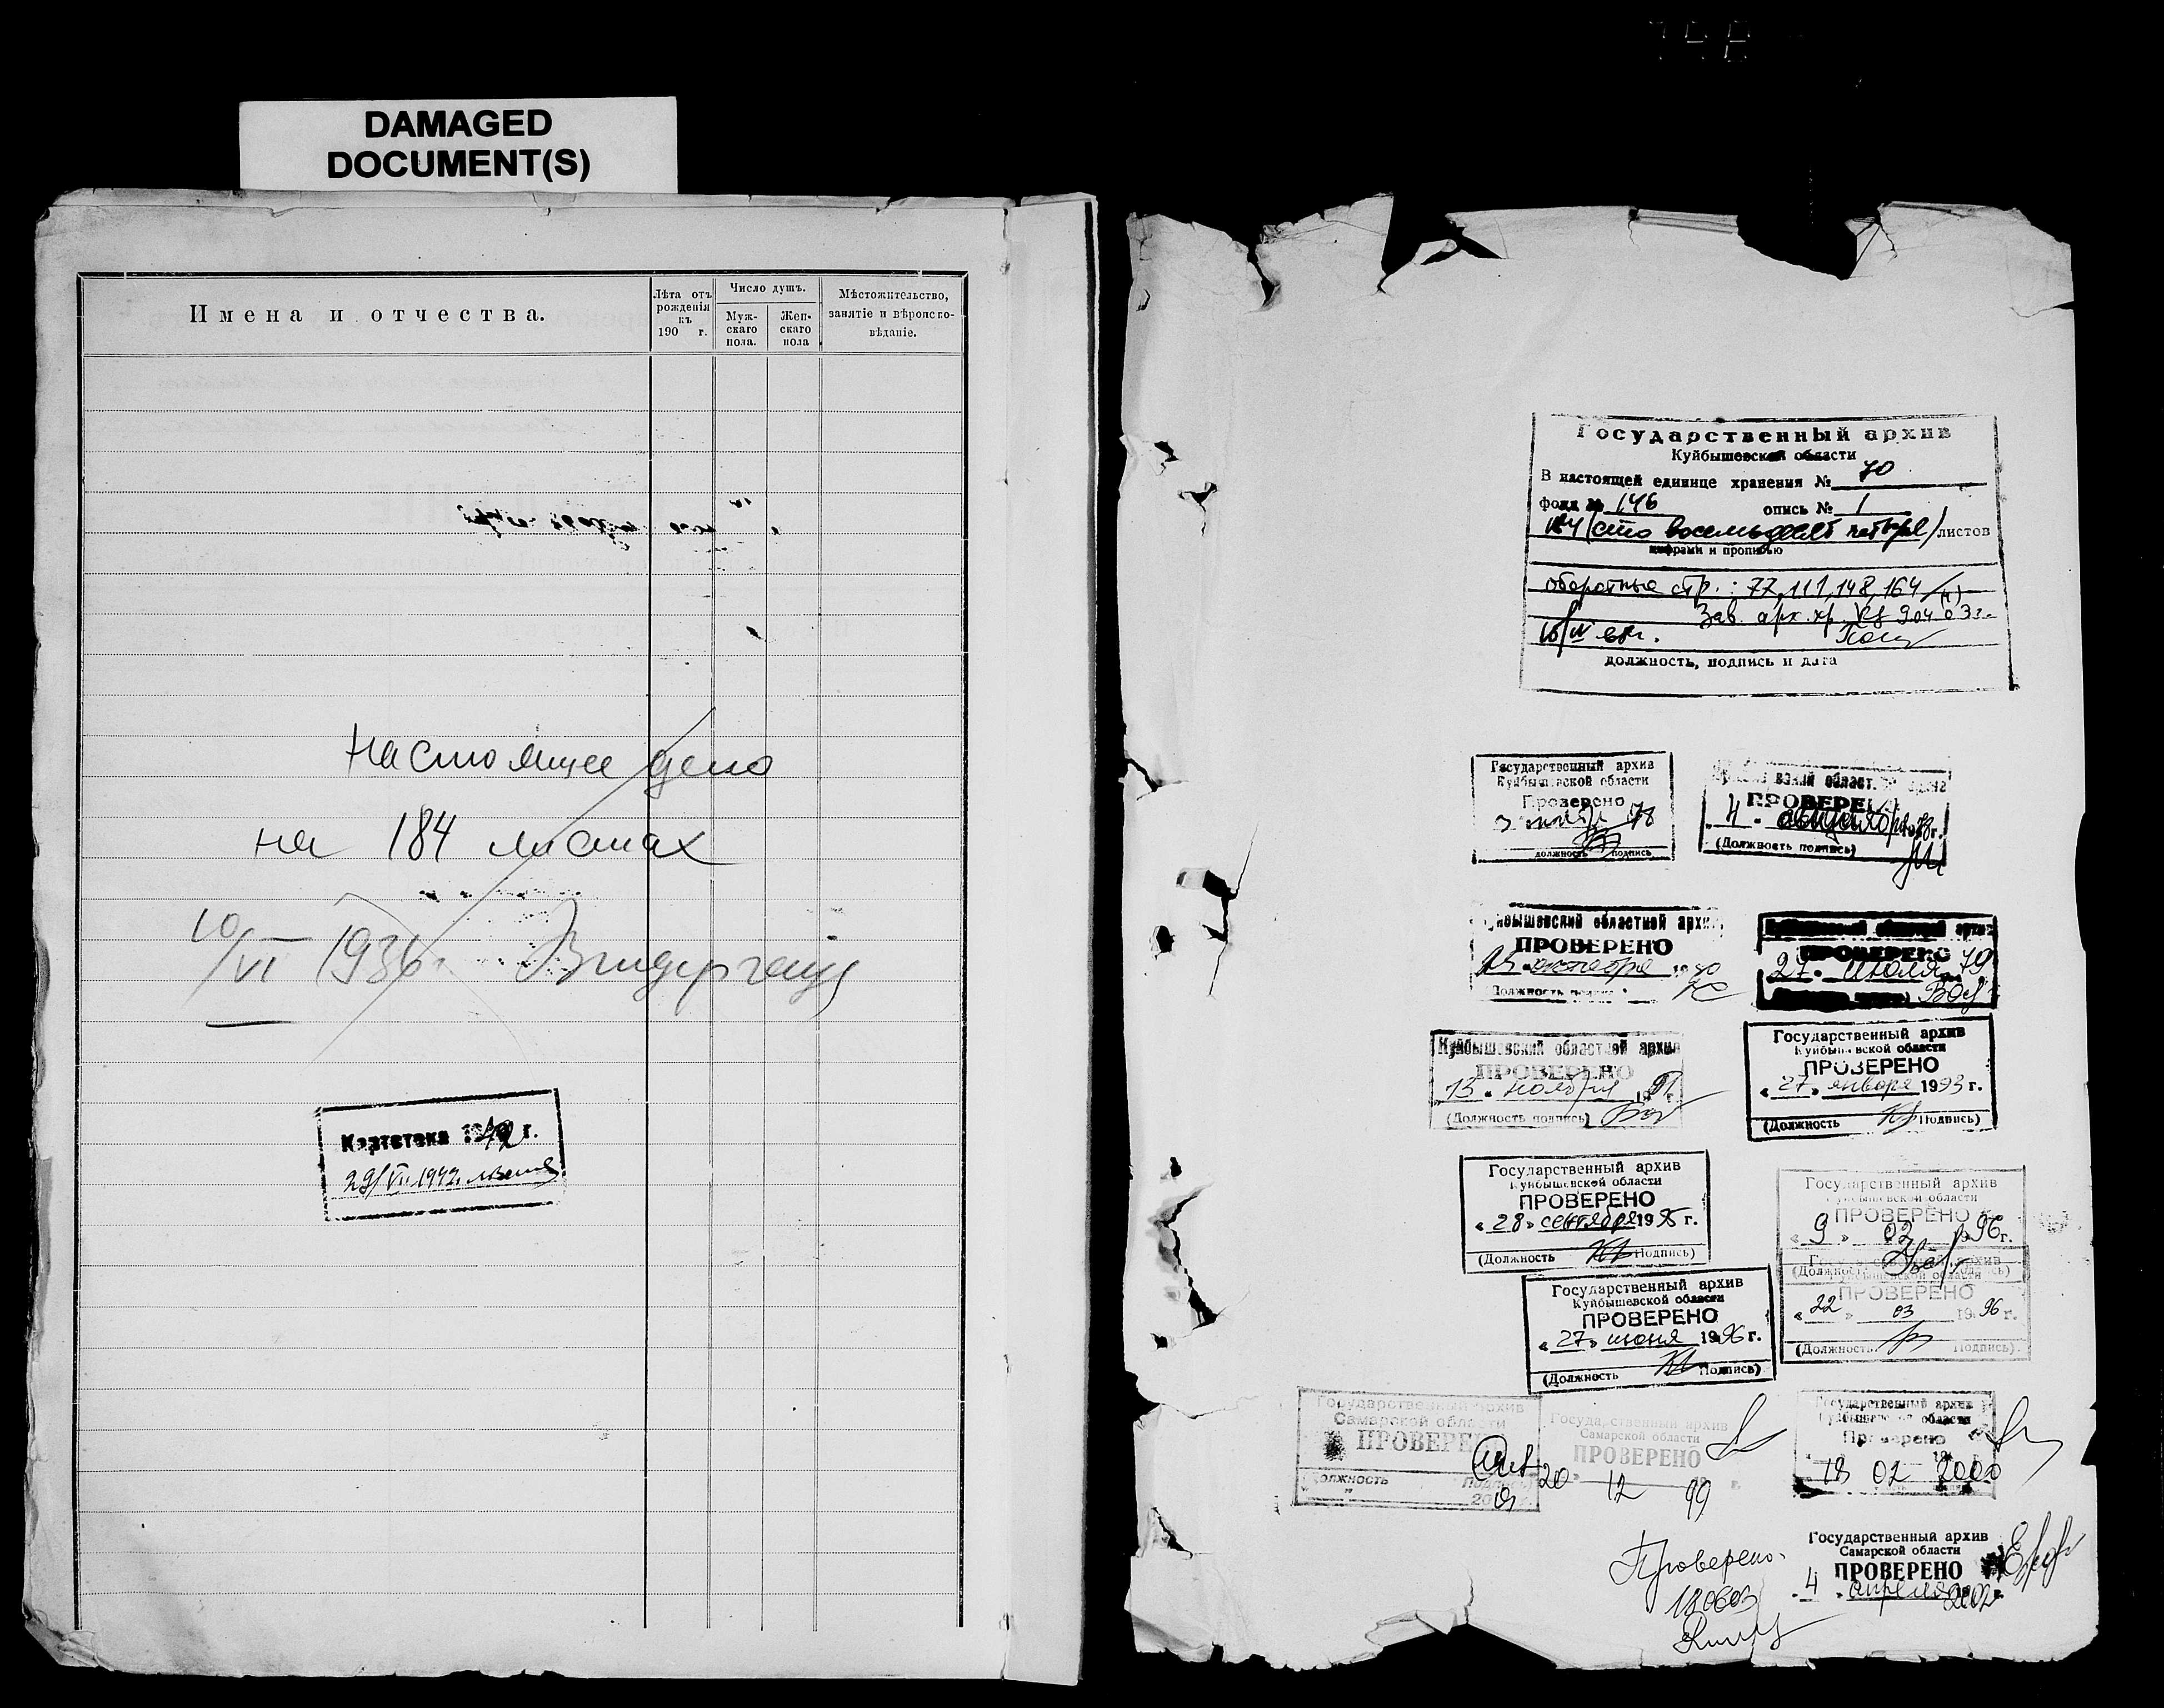 DAMAGED
DOCUMENT(S)
Имена и отчества.
Лѣта отъ
рожденія
къ
190 г.
Число душъ.
Муж-
скаго
пола.
Жен-
скаго
пола
Мѣстожительство,
занятіе и вѣроиспо-
вѣданіе.
Настоящее дело
на 184 листах
10/VI 1936
Картотека 1942 г.
29/VII 1942.
Государственный архив
Куйбышевской области
В настоящей единице хранения № 70
фонд № 146 опись № 1
184/сто восемьдесят четыре/листов
цифрами и прописью
оборотные стр.: 77, 111, 148, 164
Зав. арх. хр.
должность, подпись и дата
Государственный архив
Куйбышевской области
Проверено
78
должность подпись
ПРОВЕРЕНО
4
(Должность подпись)
Куйбышевский областной архив
ПРОВЕРЕНО
октября
Должность
Куйбышевский областной архив
ПРОВЕРЕНО
27 июля 79
Куйбышевский областной архив
ПРОВЕРЕНО
13 ноября 19 г.
(Должность подпись)
Государственный архив
Куйбышевской области
ПРОВЕРЕНО
« 27 » января 1993 г.
(Должность Подпись)
Государственный архив
Куйбышевской области
ПРОВЕРЕНО
« 28 » сентября 1995 г.
(Должность Подпись)
Государственный архив
Куйбышевской области
ПРОВЕРЕНО
« 9 » 02 1996 г.
(Должность Подпись)
Государственный архив
Куйбышевской области
ПРОВЕРЕНО
« 22 » 03 1996 г.
(Должность Подпись).
Государственный архив
Куйбышевской области
ПРОВЕРЕНО
« 27 » июня 1996 г.
(Должность Подпись)
Государственный архив
Самарской области
ПРОВЕРЕНО
Должность Подпись
Государственный архив
Самарской области
ПРОВЕРЕНО
20 12 99 г.
Государственный архив
Куйбышевской области
Проверено
18 02 2000
Проверено
180603
Государственный архив
Самарской области
ПРОВЕРЕНО
4 апреля 2002 г.